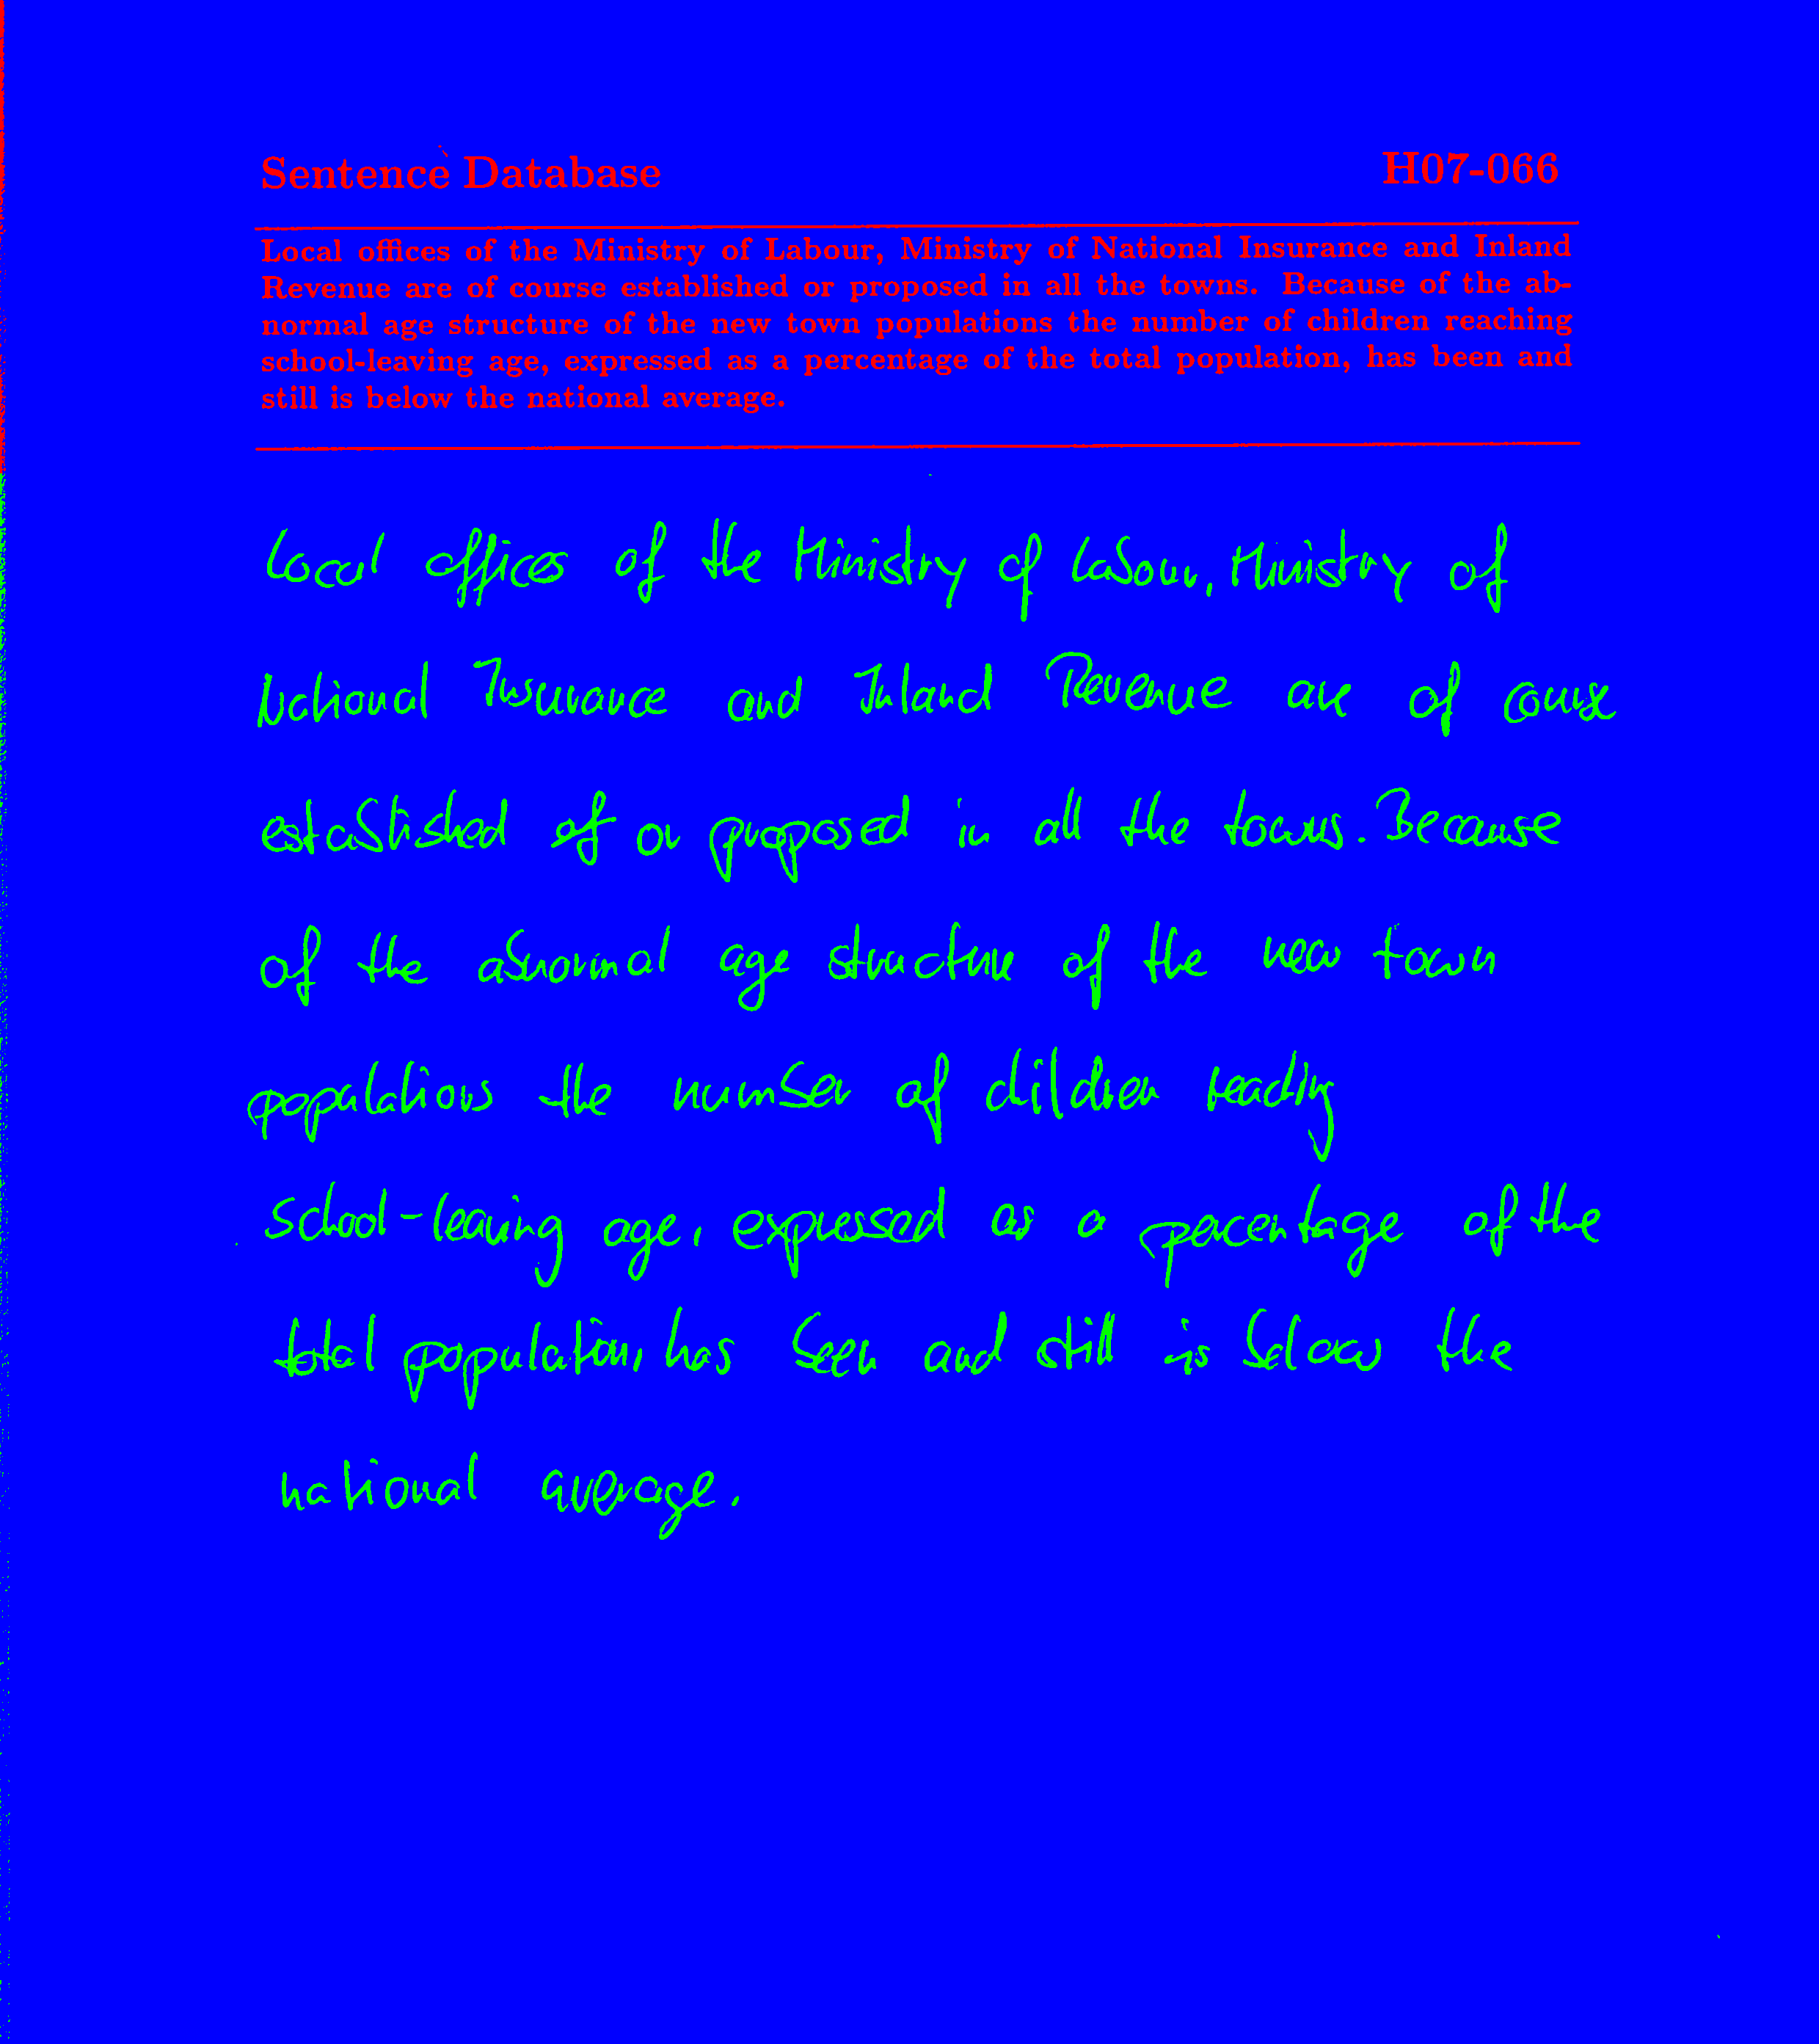 Sentence Database H07-066
Local offices of the Ministry of Labour, Ministry of National Insurance and Inland
Revenue are of course established or proposed in all the towns. Because of the ab-
normal age structure of the new town populations the number of children reaching
school-leaving age, expressed as a percentage of the total population, has been and
still is below the national average.
Local offices of the Ministry of Labour, Ministry of
National Insurance and Inland Revenue are of course
established of or proposed in all the towns. Because
of the abnormal age structure of the new town
populations the number of children reaching
school-leaving age, expressed as a percentage of the
total population, has been and still is below the
national average.